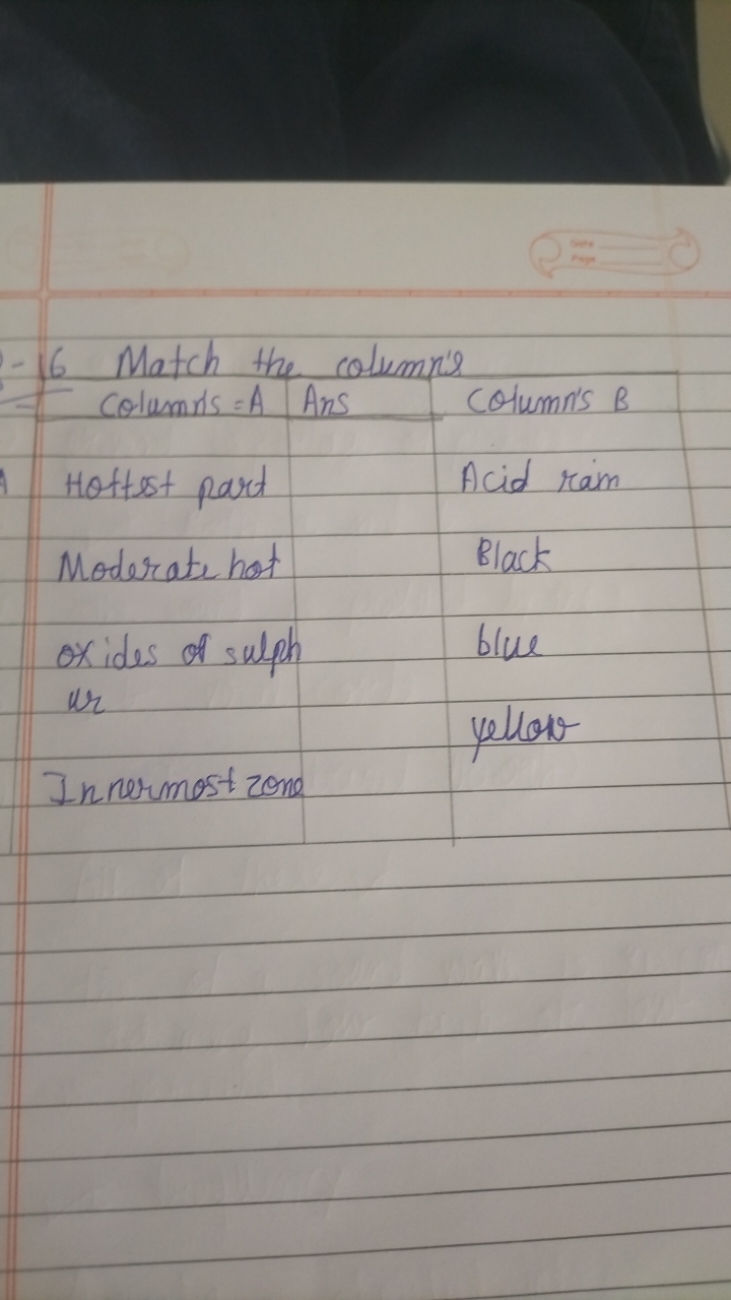 - 16 Match the column's
Columns = A Ans Column's B
A Hottest part Acid rain
Moderate hot Black
oxides of sulph blue
ur
yellow
Innermost zone